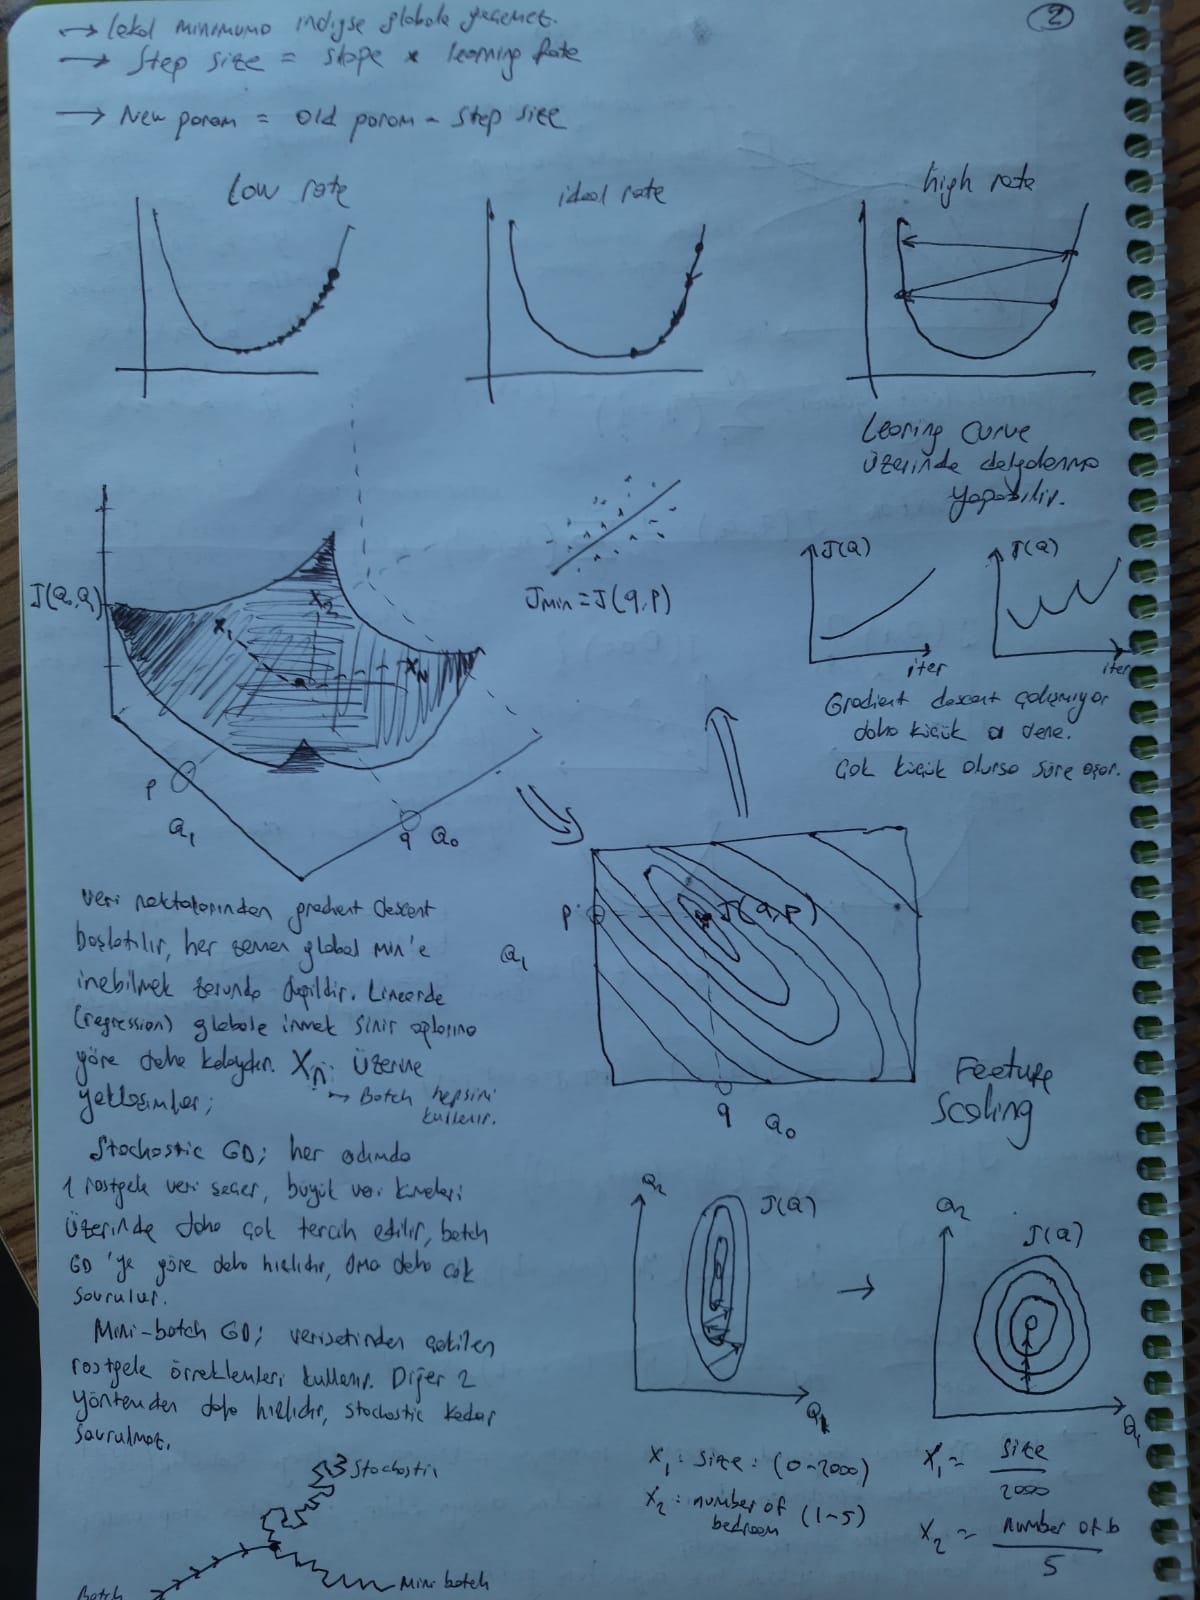 2
→ Lokal minimuma indiyse globale geçemez.
→ Step size = slope * learning Rate
→ New param = Old param - Step size
Low rate
ideal rate
high rate
Learing Curve
üzerinde dalgalanma
yapabilir.
J(Q₀,Q₁)
X₁
X₂
Xₙ
P
Q₁
q Q₀
Jmin = J(q,p)
J(Q)
iter
J(Q)
iter
Gradient descent çalışmıyor
daha küçük α dene.
Çok küçük olursa süre aşar.
P
J(q,p)
Q₁
q Q₀
Veri noktalarından gradient descent
başlatılır, her zaman global min'e
inebilmek zorunda değildir. Lineerde
(regression) globale inmek sinir ağlarına
göre daha kolaydır. Xₙ üzerine
yaklaşımlar;
→ Batch hepsini
kullanır.
Stochastic GD; her adımda
1 rastgele veri seçer, büyük veri kümeleri
üzerinde daha çok tercih edilir, batch
GD'ye göre daha hızlıdır, ama daha çok
savrulur.
Mini-batch GD; verisetinden çekilen
rastgele örneklemleri kullanır. Diğer 2
yöntemden daha hızlıdır, stochastic kadar
savrulmaz.
Stochastic
Mini batch
Batch
Feature
Scaling
Q₂
J(Q)
Q₁
→
Q₂
J(Q)
Q₁
X₁: size: (0-2000)
X₂: number of (1-5)
bedroom
X₁ = size / 2000
X₂ = number of b / 5